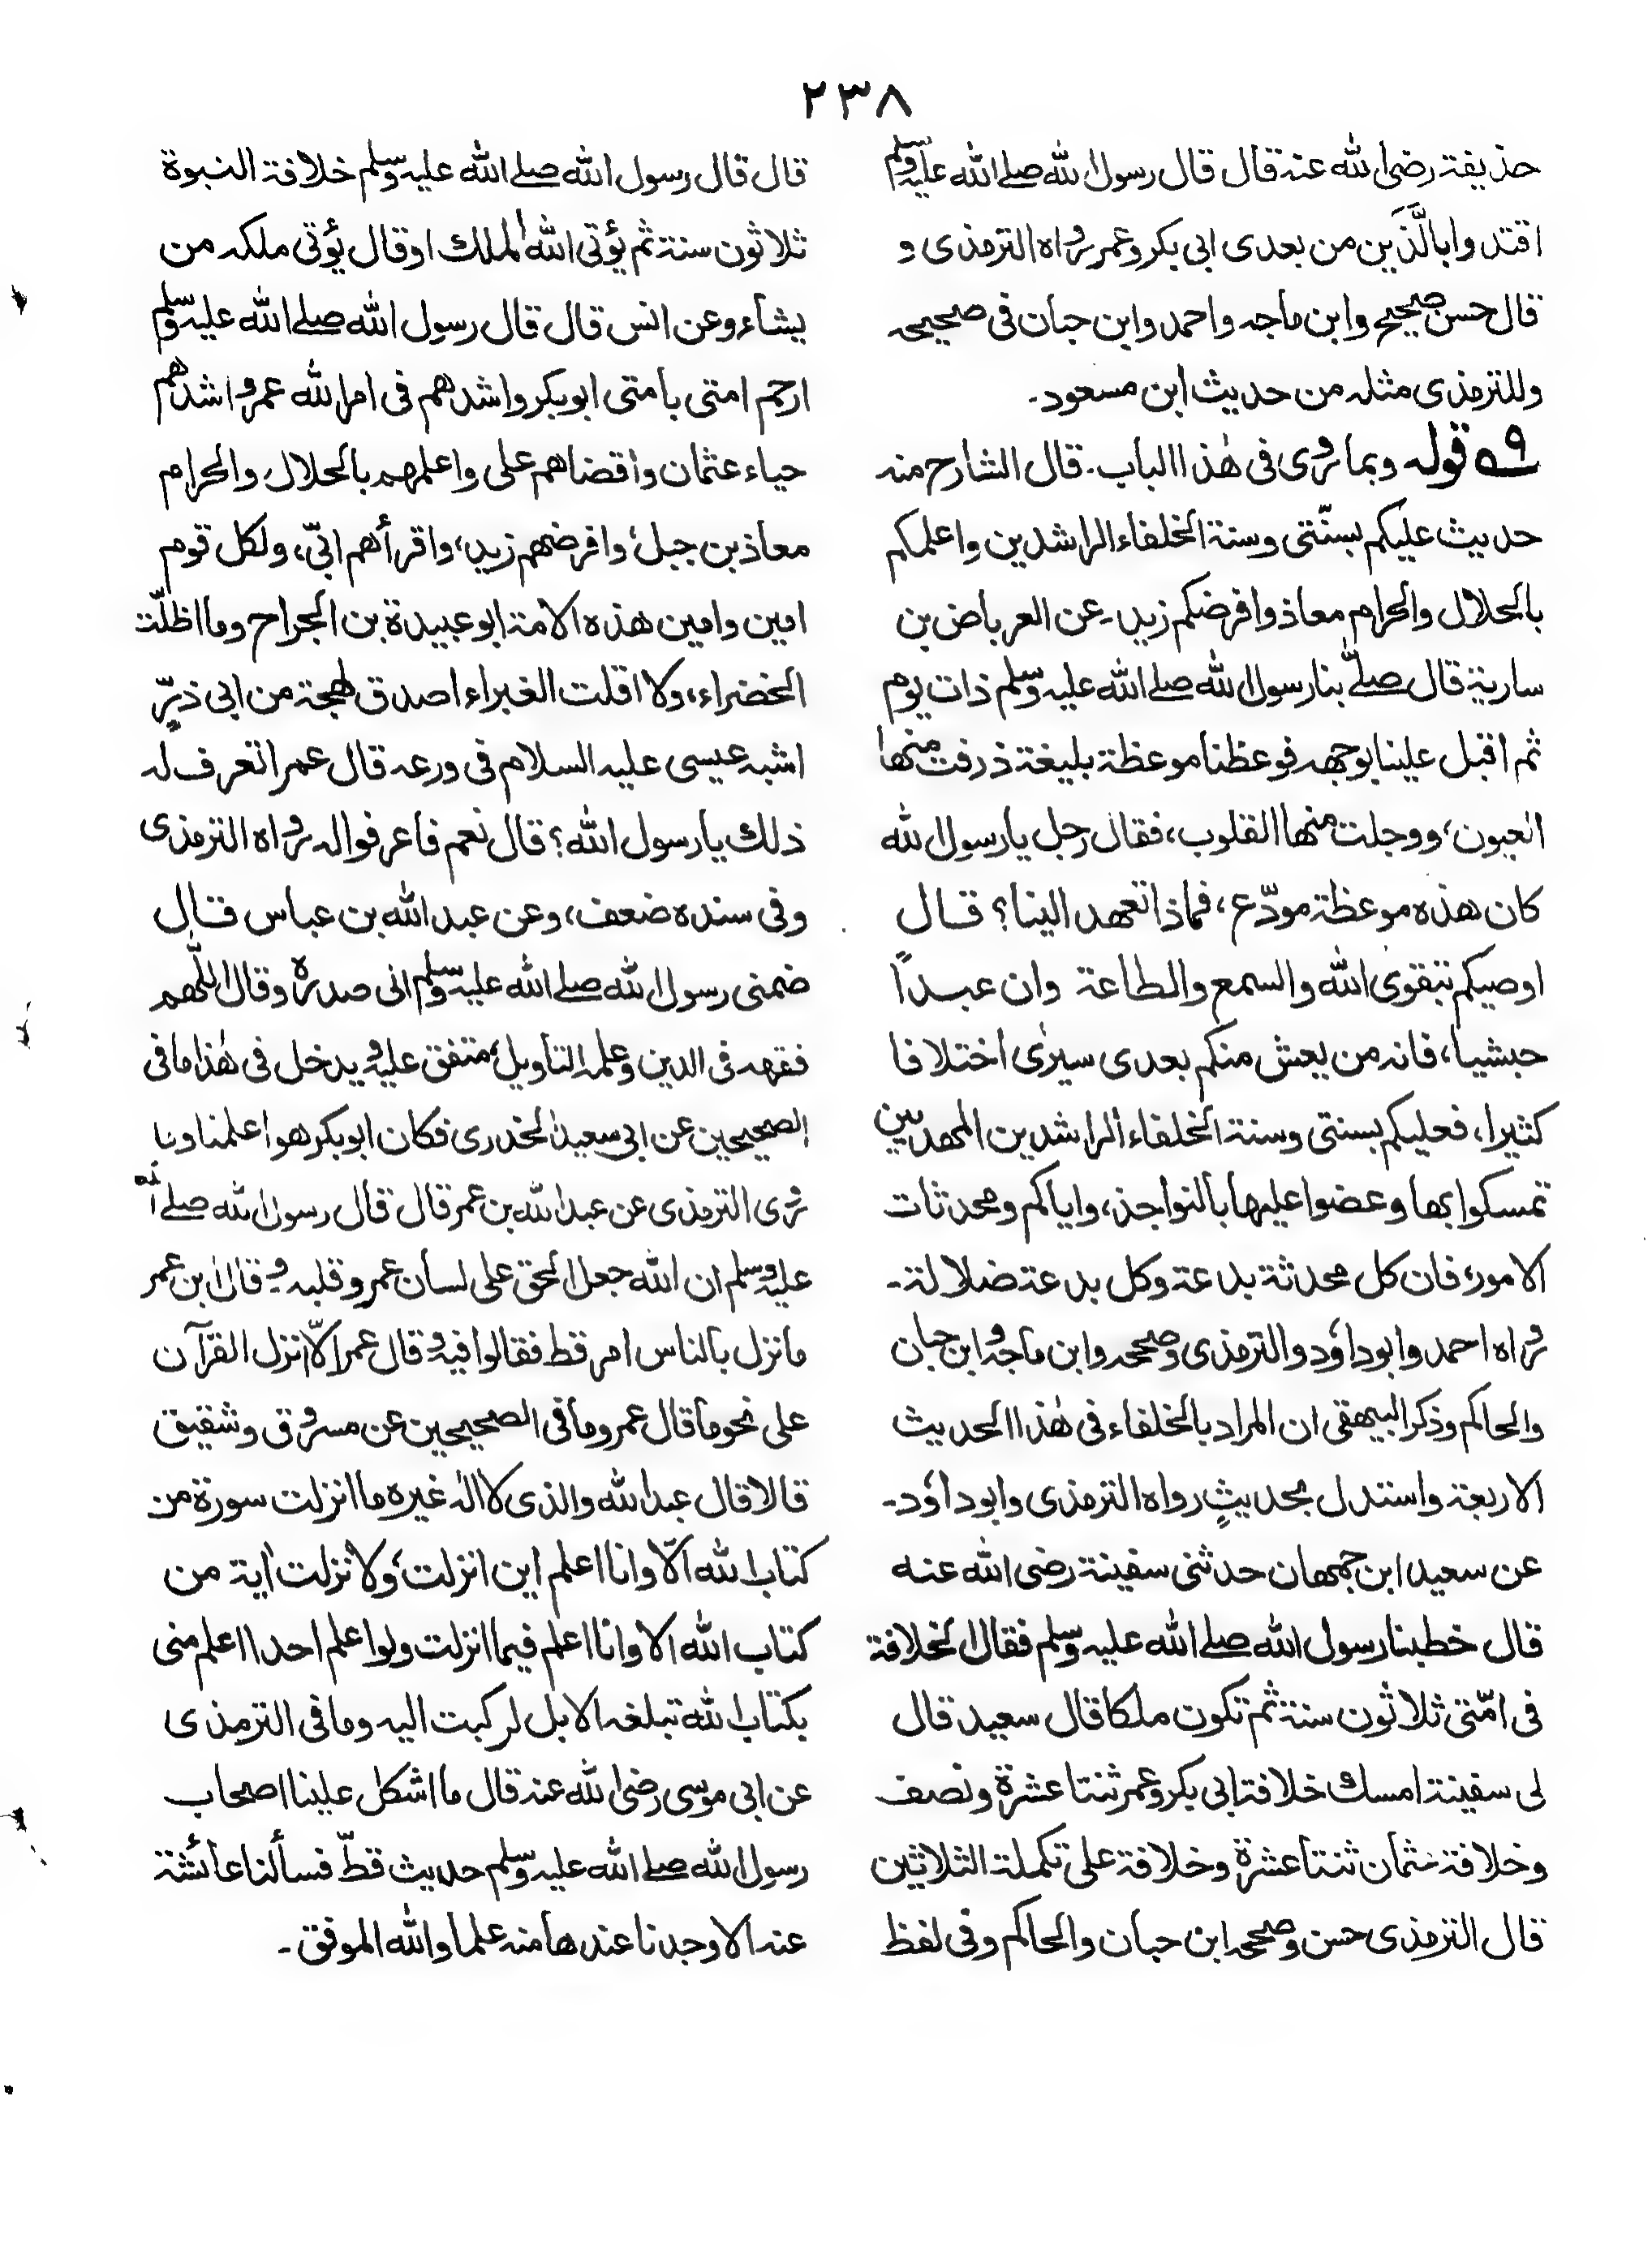 ٢٣٨
حذيفة رضى الله عنه قال قال رسول الله صلے الله عليه وسلم
اقتدوا بالَّذَين من بعدى ابى بكر وعمر رواه الترمذى و
قال حسن صحيح وابن ماجه واحمد وابن حبان فى صحيحه
وللترمذى مثله من حديث ابن مسعود۔
٩ے قوله وبما روى فى هٰذا الباب۔ قال الشارح منه
حديث عليكم بسنّتى وسنة الخلفاء الراشدين واعلمكم
بالحلال والحرام معاذ وافرضكم زيد۔ عن العرباض بن
سارية قال صلّے بنا رسول الله صلے الله عليه وسلم ذات يوم
ثم اقبل علينا بوجهه فوعظنا موعظة بليغة ذرفت منها
العيون، ووجلت منها القلوب، فقال رجل يا رسول الله
كان هذه موعظة مودّع، فماذا تعهد الينا؟ قال
اوصيكم بتقوى الله والسمع والطاعة وان عبداً
حبشيا، فانه من يعش منكم بعدى سيرىٰ اختلافا
كثيرا، فعليكم بسنتى وسنة الخلفاء الراشدين المهديين
تمسكوا بها وعضوا عليها بالنواجذ، واياكم ومحدثات
الامور، فان كل محدثة بدعة وكل بدعة ضلالة۔
رواه احمد وابوداؤد والترمذى وصححه وابن ماجه وابن حبان
والحاكم وذكر البيهقى ان المراد بالخلفاء فى هٰذا الحديث
الاربعة واستدل بحديثٍ رواه الترمذى وابوداؤد۔
عن سعيد ابن جمهان حدثنى سفينة رضى الله عنه
قال خطبنا رسول الله صلے الله عليه وسلم فقال الخلافة
فى امّتى ثلاثون سنة ثم تكون ملكا قال سعيد قال
لى سفينة امسك خلافة ابى بكر وعمر ثنتا عشرة ونصف
وخلافة عثمان ثنتا عشرة وخلافة على تكملة الثلاثين
قال الترمذى حسن وصححه ابن حبان والحاكم وفى لفظ
قال قال رسول الله صلے الله عليه وسلم خلافة النبوة
ثلاثون سنة ثم يؤتى الله الملك او قال يؤتى ملكه من
يشاء وعن انس قال قال رسول الله صلے الله عليه وسلم
ارحم امتى بامتى ابوبكر واشدهم فى امر الله عمر واشدهم
حياء عثمان واقضاهم على واعلمهم بالحلال والحرام
معاذ بن جبل، وافرضهم زيد، واقرأهم ابىّ، ولكل قوم
امين وامين هذه الامة ابوعبيدة بن الجراح وما اظلّت
الخضراء، ولا اقلت الغبراء اصدق لهجة من ابى ذرٍّ
اشبه عيسى عليه السلام فى ورعه قال عمر اتعرف له
ذلك يا رسول الله؟ قال نعم فاعرفوا له رواه الترمذى
وفى سنده ضعف، وعن عبد الله بن عباس قال
ضمنى رسول الله صلے الله عليه وسلم الى صدره وقال اللّٰهم
فقهه فى الدين وعلمه التاويل، متفق عليه ويدخل فى هٰذا ما فى
الصحيحين عن ابى سعيد الخدرى فكان ابوبكر هو اعلمنا وبنا
روى الترمذى عن عبد الله بن عمر قال قال رسول الله صلے الله
عليه وسلم ان الله جعل الحق على لسان عمر وقلبه۔ وقال ابن عمر
ما نزل بالناس امر قط فقالوا فيه وقال عمر الّا نزل القرآن
على نحو ما قال عمر وما فى الصحيحين عن مسروق وشقيق
قالا قال عبد الله والذى لا اله غيره ما انزلت سورة من
كتاب الله الّا وانا اعلم اين انزلت، ولا نزلت آية من
كتاب الله الا وانا اعلم فيما انزلت ولو اعلم احدا اعلم منى
بكتاب الله تبلغه الابل لركبت اليه وما فى الترمذى
عن ابى موسى رضى الله عنه قال ما اشكل علينا اصحاب
رسول الله صلے الله عليه وسلم حديث قطّ فسألنا عائشة
عنه الا وجدنا عندها منه علما والله الموفق۔